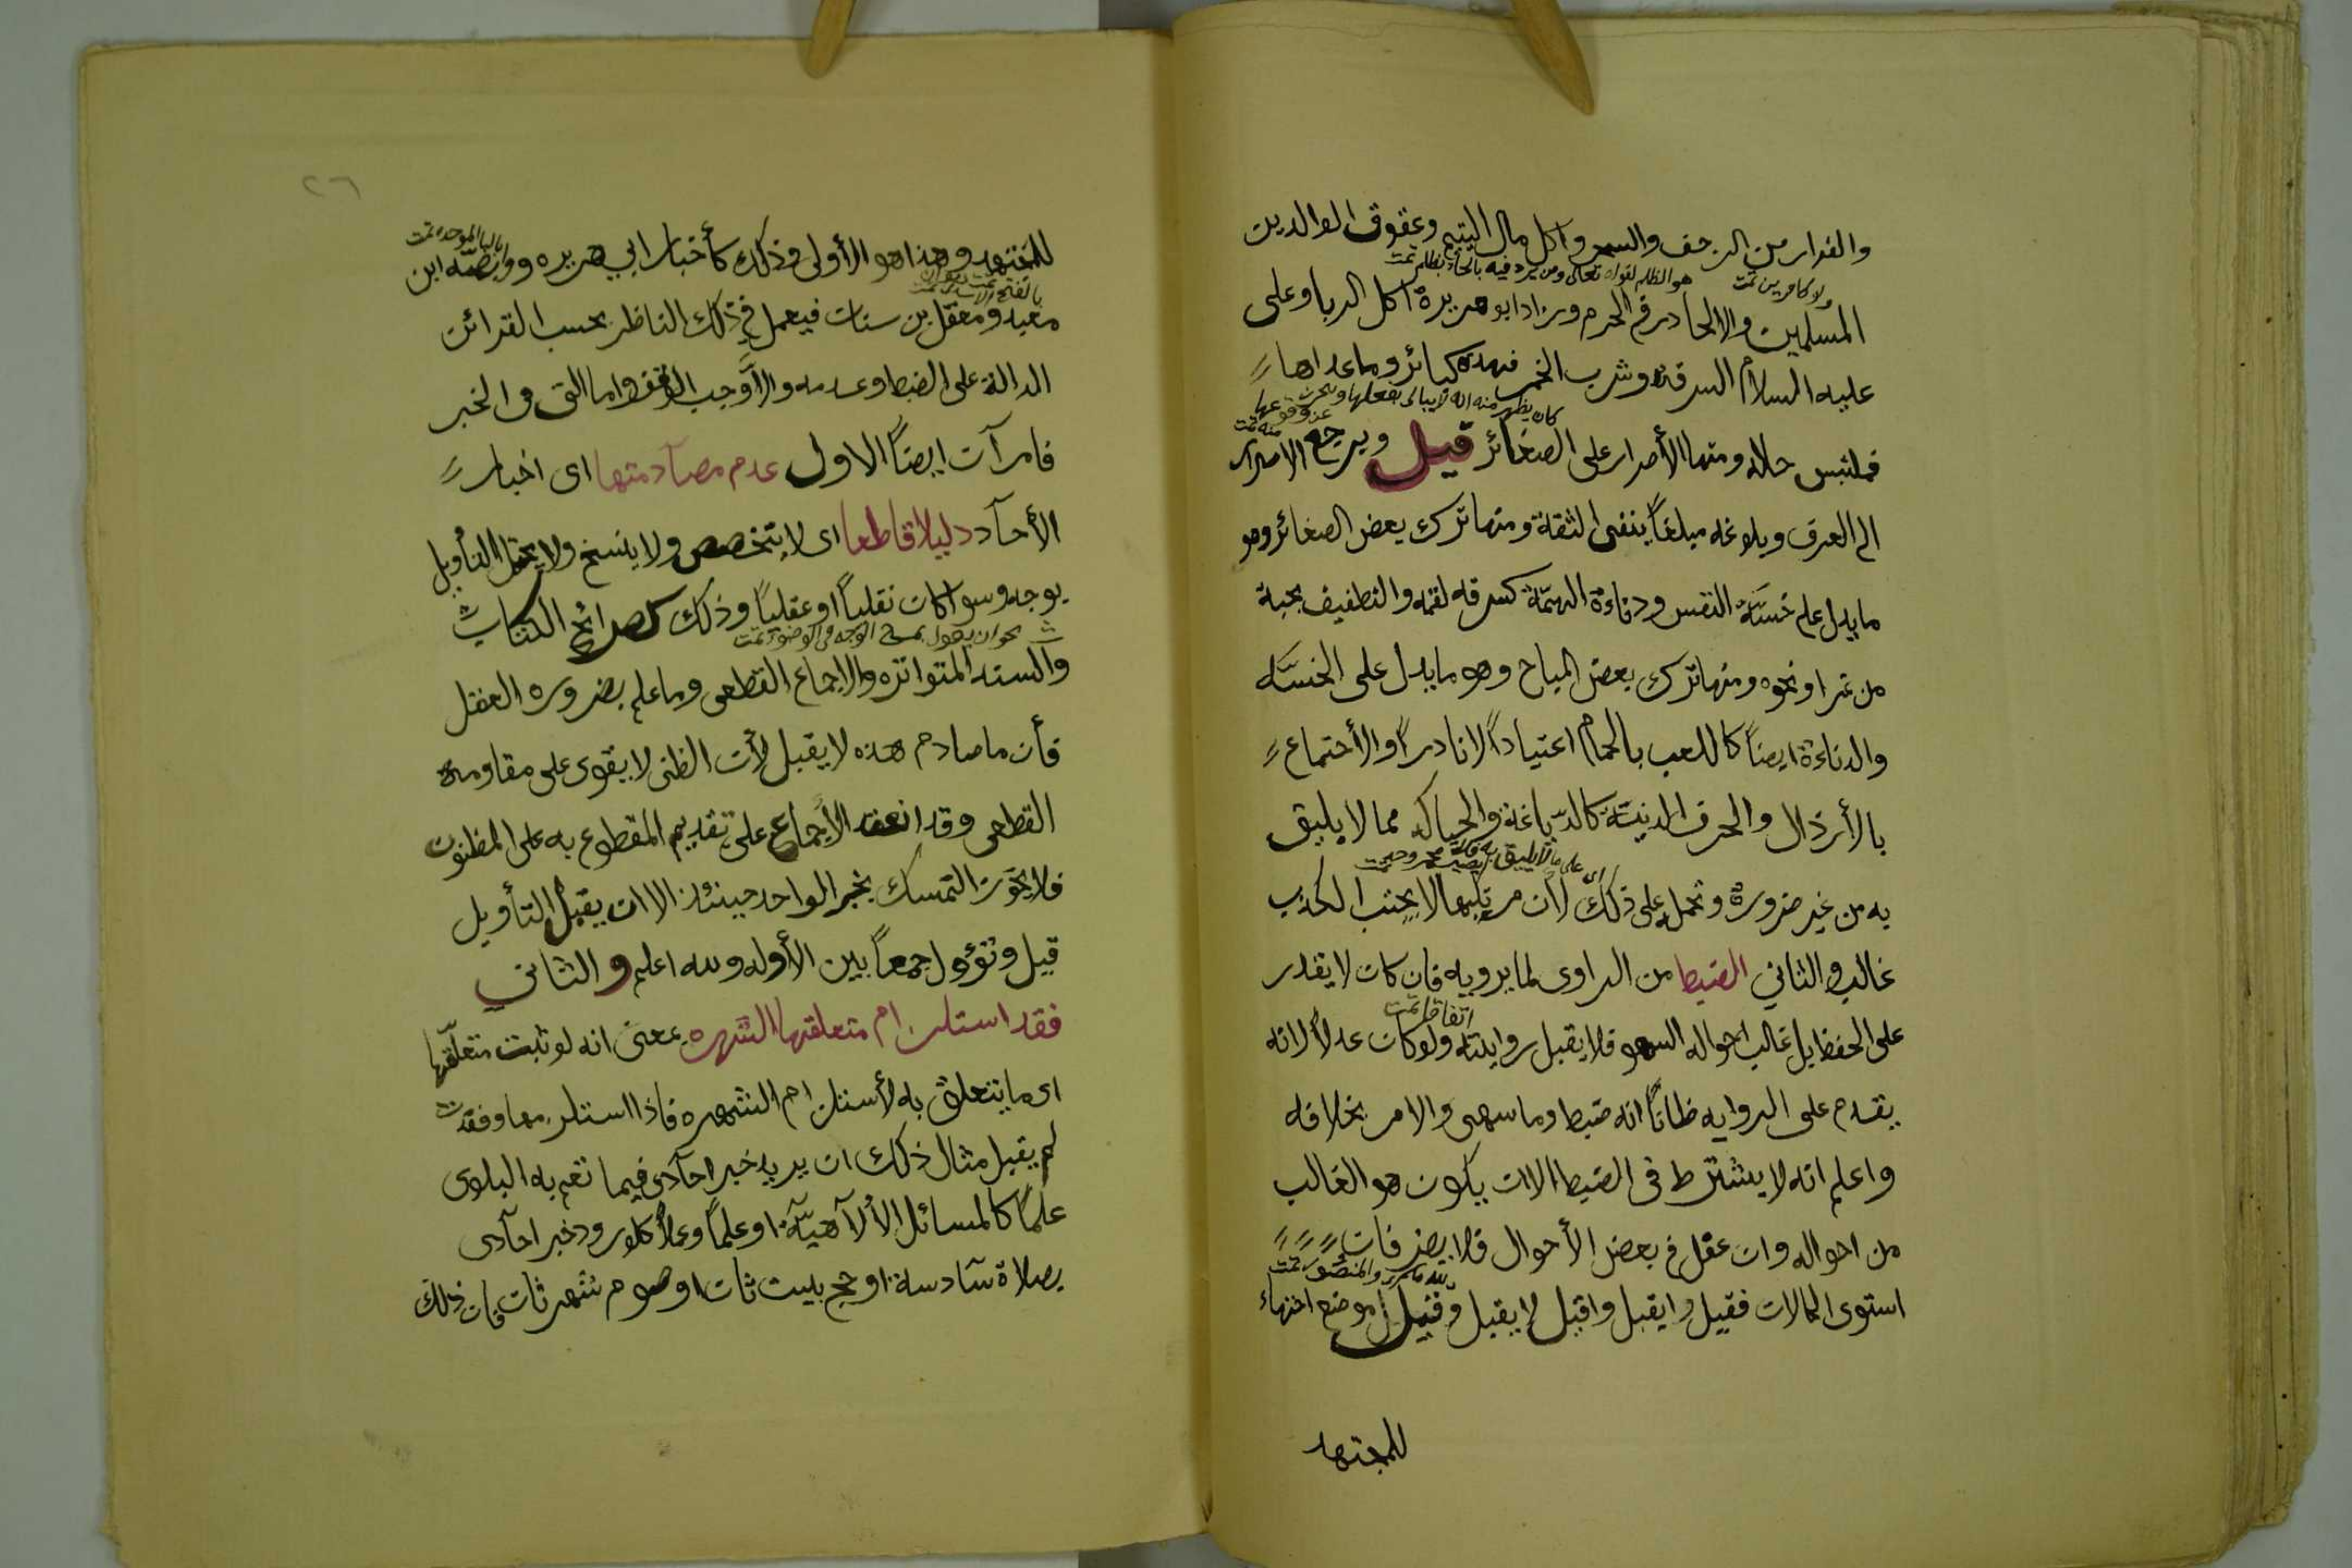 والفرار من الزحف والسحر واكل مال اليتيم وعقوق الوالدين
ولا كافرين تمت
هو الظلم لقوله تعالى ومن يرد فيه بالحاد بظلم تمت
المسلمين والالحاد في الحرم وزاد ابو هريرة اكل الربا وعلى
عليه السلام السرقه وشرب الخمر فهذه كبائر وما عداها
كان يظهر منه انه لا يبالى بفعلها
فملتبس حاله ومنها الأصرار على الصغائر قيل ويرجع الاصرار
الى العرف وبلوغه مبلغاً ينفى الثقة ومنها ترك بعض الصغائر وهو
ما يدل على خسّة النفس ودناءة الهمّة كسرقه لقمه والتطفيف بحبة
من تمر او نحوه ومنها ترك بعض المباح وهو ما يدل على الخسّه
والدناءة ايضاً كاللعب بالحمام اعتياداً لا نادراً والأجتماع
بالأرذال والحرف الدنيّة كالدّباغة والحياكه مما لا يليق
اى على ما لا يليق به
به من غير ضرورة وتحمله على ذلك لأن مرتكبها لا يجتنب الكذب
غالبا والثاني الضبط من الراوى لما يرويه فان كان لا يقدر
اتفاقا تمت
على الحفظ بل غالب احواله السهو فلا يقبل روايته ولو كان عدلاً لانه
يقدم على الروايه ظاناً انه ضبط وما سهى والامر بخلافه
واعلم انه لا يشترط فى الضبط الا ان يكون هو الغالب
من احواله وان غفل في بعض الأحوال فلا يضر فان
استوى الحالان فقيل لا يقبل وقيل يقبل وقيل موضع اجتهاد
للمجتهد
٢٦
بالباء الموحده تمت
للمجتهد وهذا هو الأولى وذلك كأخبار ابي هريره ووابصه ابن
معبد ومعقل بن سنان فيعمل في ذلك الناظر بحسب القرائن
الدالة على الضبط وعدمه والاّ وجب الوقف واما التى فى الخبر
فامرآن ايضاً الاول عدم مصآدمتها اى اخبار
الأحآد دليلا قاطعا اى لا يتخصص ولا ينسخ ولا يحتمل التأويل
بوجه وسوا كان نقلياً او عقلياً وذلك كصرائح الكتاب
والسنه المتواتره والاجماع القطعى وما علم بضروره العقل
فأن ما صادم هذه لا يقبل لأن الظنى لا يقوى على مقاومة
القطعى وقد انعقد الأجماع على تقديم المقطوع به على المظنون
فلا يجوز التمسك بخبر الواحد حينئذ الا ان يقبل التأويل
قبل وتؤول جمعاً بين الأدله والله اعلم والثاني
فقد استلزام متعلقها الشهره بمعنى انه لو ثبت متعلّقها
اى ما يتعلق به لأستلزام الشهره فاذا استلزمها وفقدت
لم يقبل مثال ذلك ان يرد خبر احآدى فيما تعم به البلوى
علماً كالمسائل الألآهيّة او علماً وعملاً كلو ورد خبر احآدى
بصلاة سآدسة او حج بيت ثان او صوم شهر ثان فان ذلك